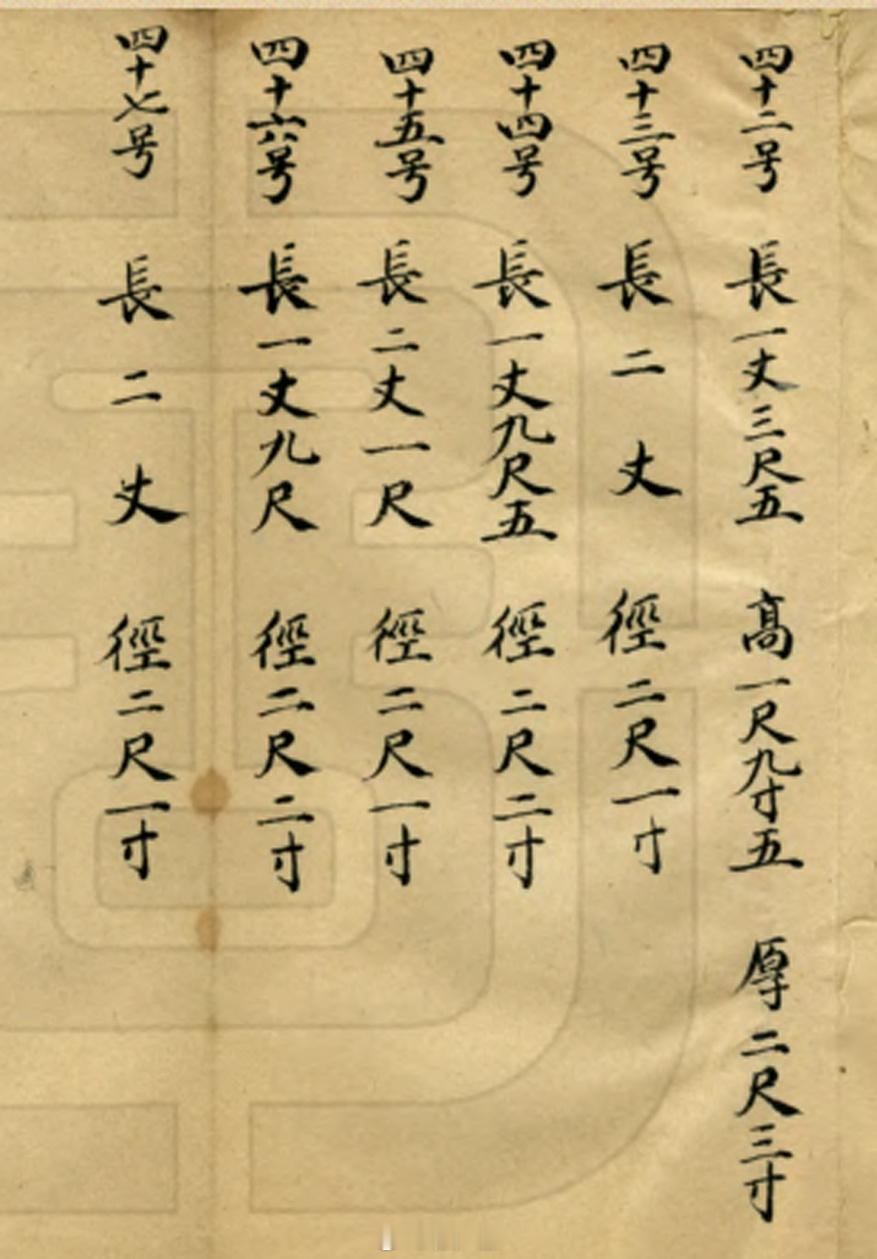 四十二号 長一丈三尺五 高一尺九寸五 厚二尺三寸
四十三号 長二丈 徑二尺一寸
四十四号 長一丈九尺五 徑二尺二寸
四十五号 長二丈一尺 徑二尺一寸
四十六号 長一丈九尺 徑二尺二寸
四十七号 長二丈 徑二尺一寸